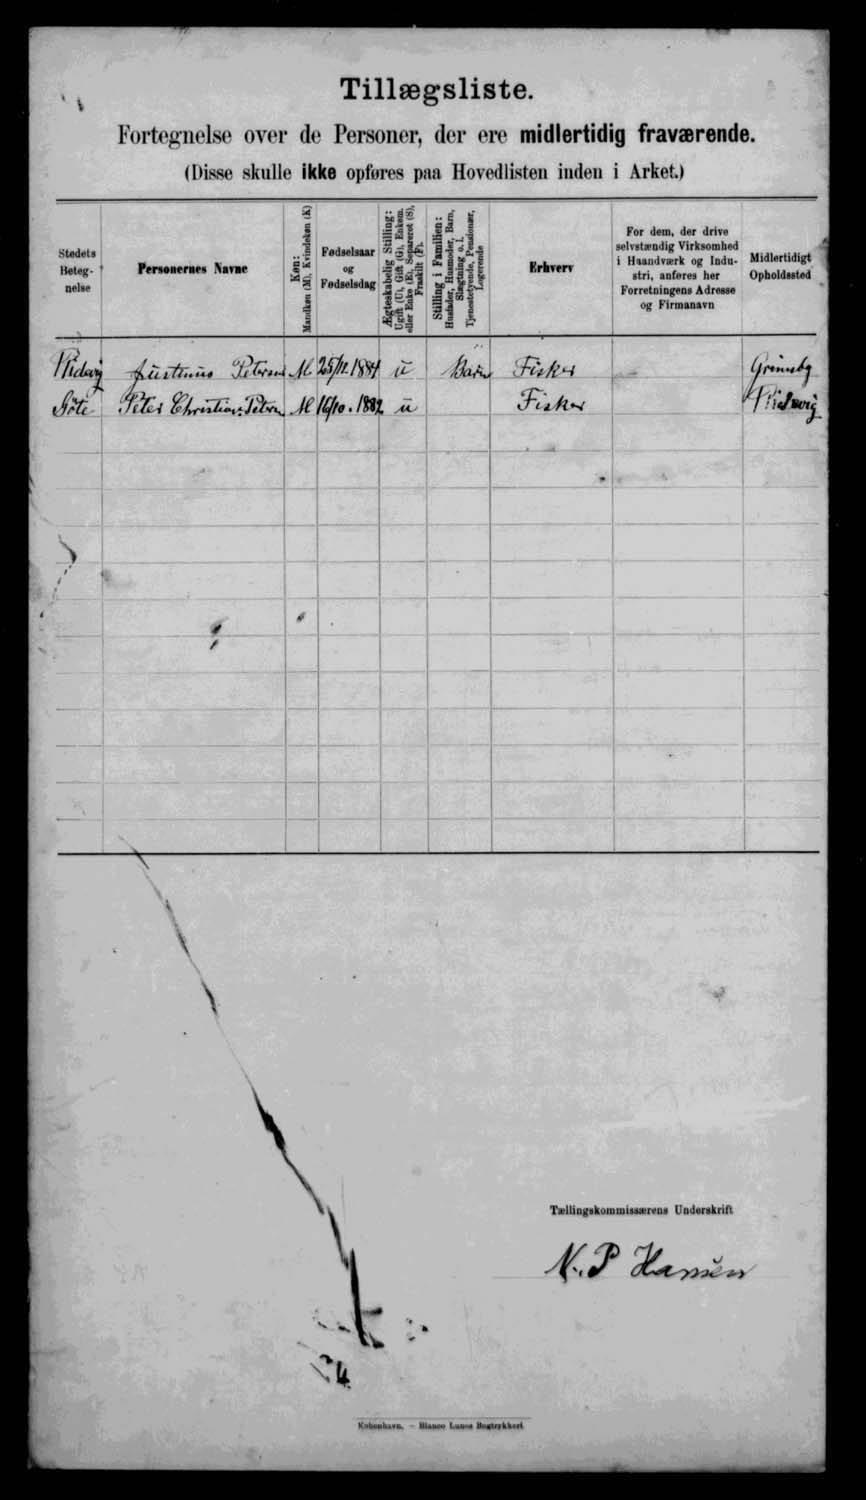 Tillægsliste.
Fortegnelse over de Personer, der ere midlertidig fraværende.
(Disse skulle ikke opføres paa Hovedlisten inden i Arket.)
Stedets Betegnelse
Personernes Navne
Køn: Mandkøn (M), Kvindekøn (K)
Fødselsaar og Fødselsdag
Ægteskabelig Stilling: Ugift (U), Gift (G), Enkem. eller Enke (E), Separeret (S), Fraskilt (F).
Stilling i Familien: Husfader, Husmoder, Barn, Slægtning o. l. Tjenestetyende, Pensionær, Logerende
Erhverv
For dem, der drive selvstændig Virksomhed i Haandværk og Industri, anføres her Forretningens Adresse og Firmanavn
Midlertidigt Opholdssted
Justinus Petersen M 25/12 1884 u Barn Fisker Grimsby
Peter Christian Petersen M 16/10 . 1882 u Fisker
Tællingskommissærens Underskrift
N. P Hansen
København. – Bianco Lunos Bogtrykkeri